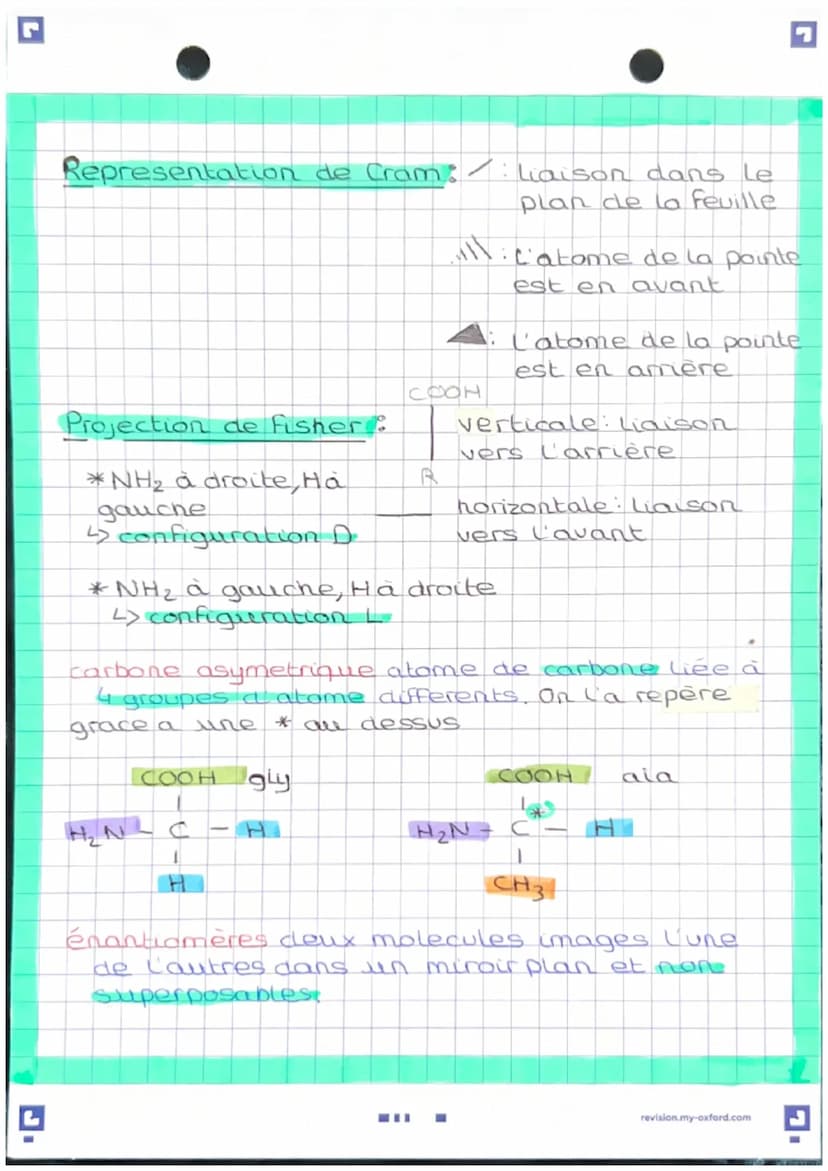 Representation de Cram: / : liaison dans le
plan de la feuille
: L'atome de la pointe
est en avant
: L'atome de la pointe
est en arrière
Projection de Fisher:
COOH
R
verticale: liaison
vers l'arrière
* NH₂ à droite, H à
gauche
↳ configuration D
horizontale: liaison
vers l'avant
* NH₂ à gauche, H à droite
↳ configuration L
carbone asymetrique atome de carbone liée à
4 groupes d'atome differents. On l'a repère
grace a une * au dessus
COOH gly
H₂N - C - H
H
COOH ala
*
H₂N - C - H
CH₃
énantiomères deux molecules images l'une
de l'autres dans un miroir plan et non
superposables.
revision.my-oxford.com